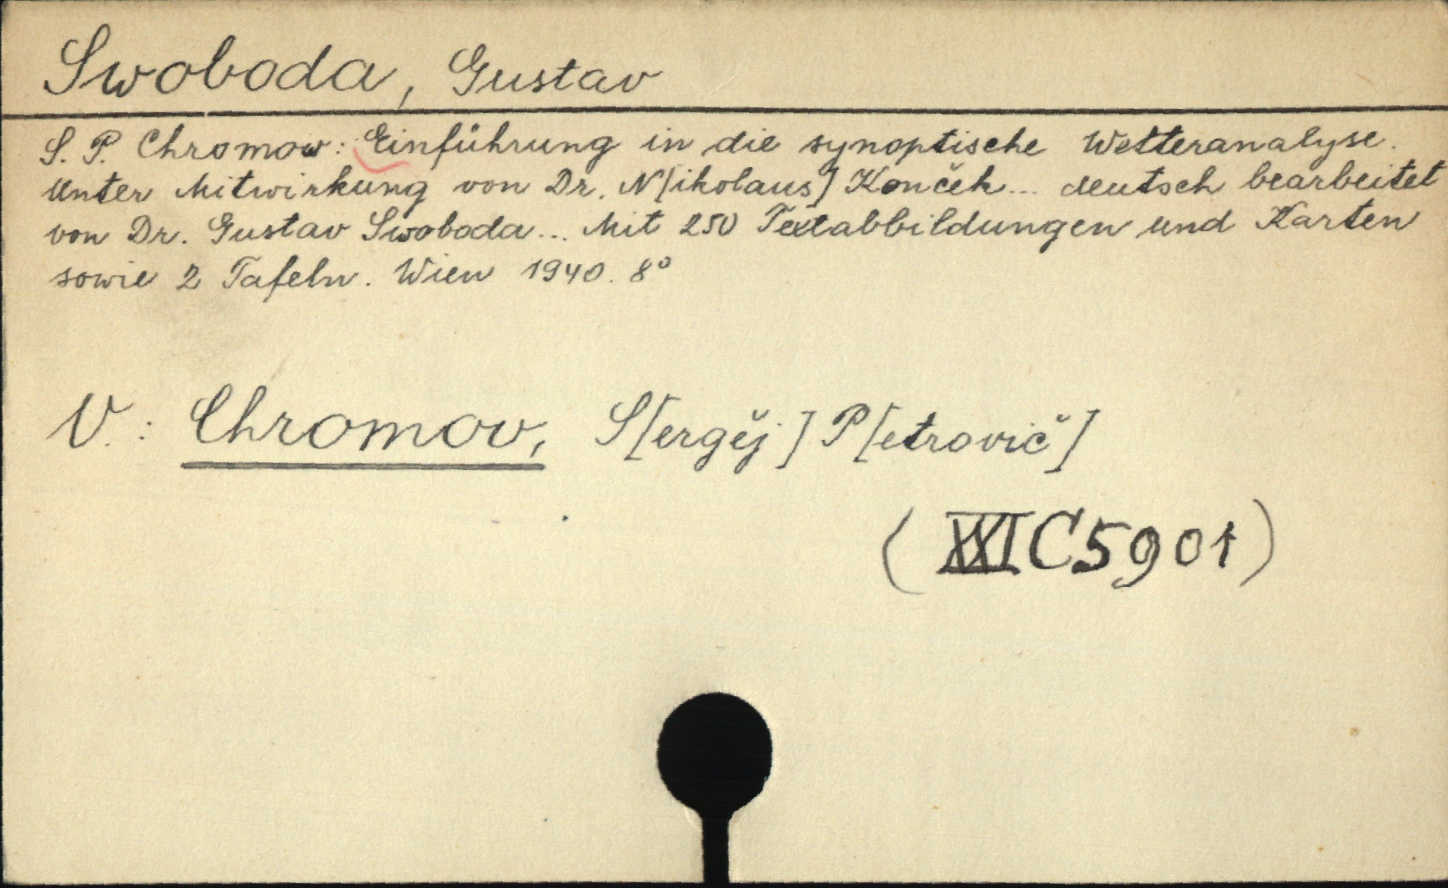 Swoboda, Gustav
S. P. Chromow: Einführung in die synoptische Wetteranalyse.
Unter Mitwirkung von Dr. N[ikolaus] Konček... deutsch bearbeitet
von Dr. Gustav Swoboda... Mit 250 Textabbildungen und Karten
sowie 2 Tafeln. Wien 1940. 8°
V.: Chromov, S[ergěj] P[etrovič]
(XXI C 5901)